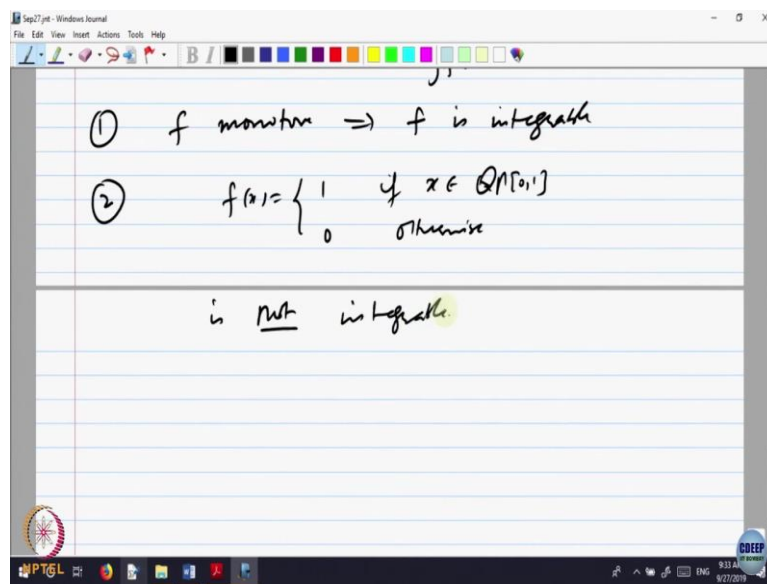 Sep27.jnt - Windows Journal
File Edit View Insert Actions Tools Help
B I
① f monotone ⇒ f is integrable
② f(x) = { 1 if x ∈ Q∩[0,1]
0 otherwise
is not integrable.
NPTEL
ENG
9:33 AM
9/27/2019
CDEEP
IIT BOMBAY